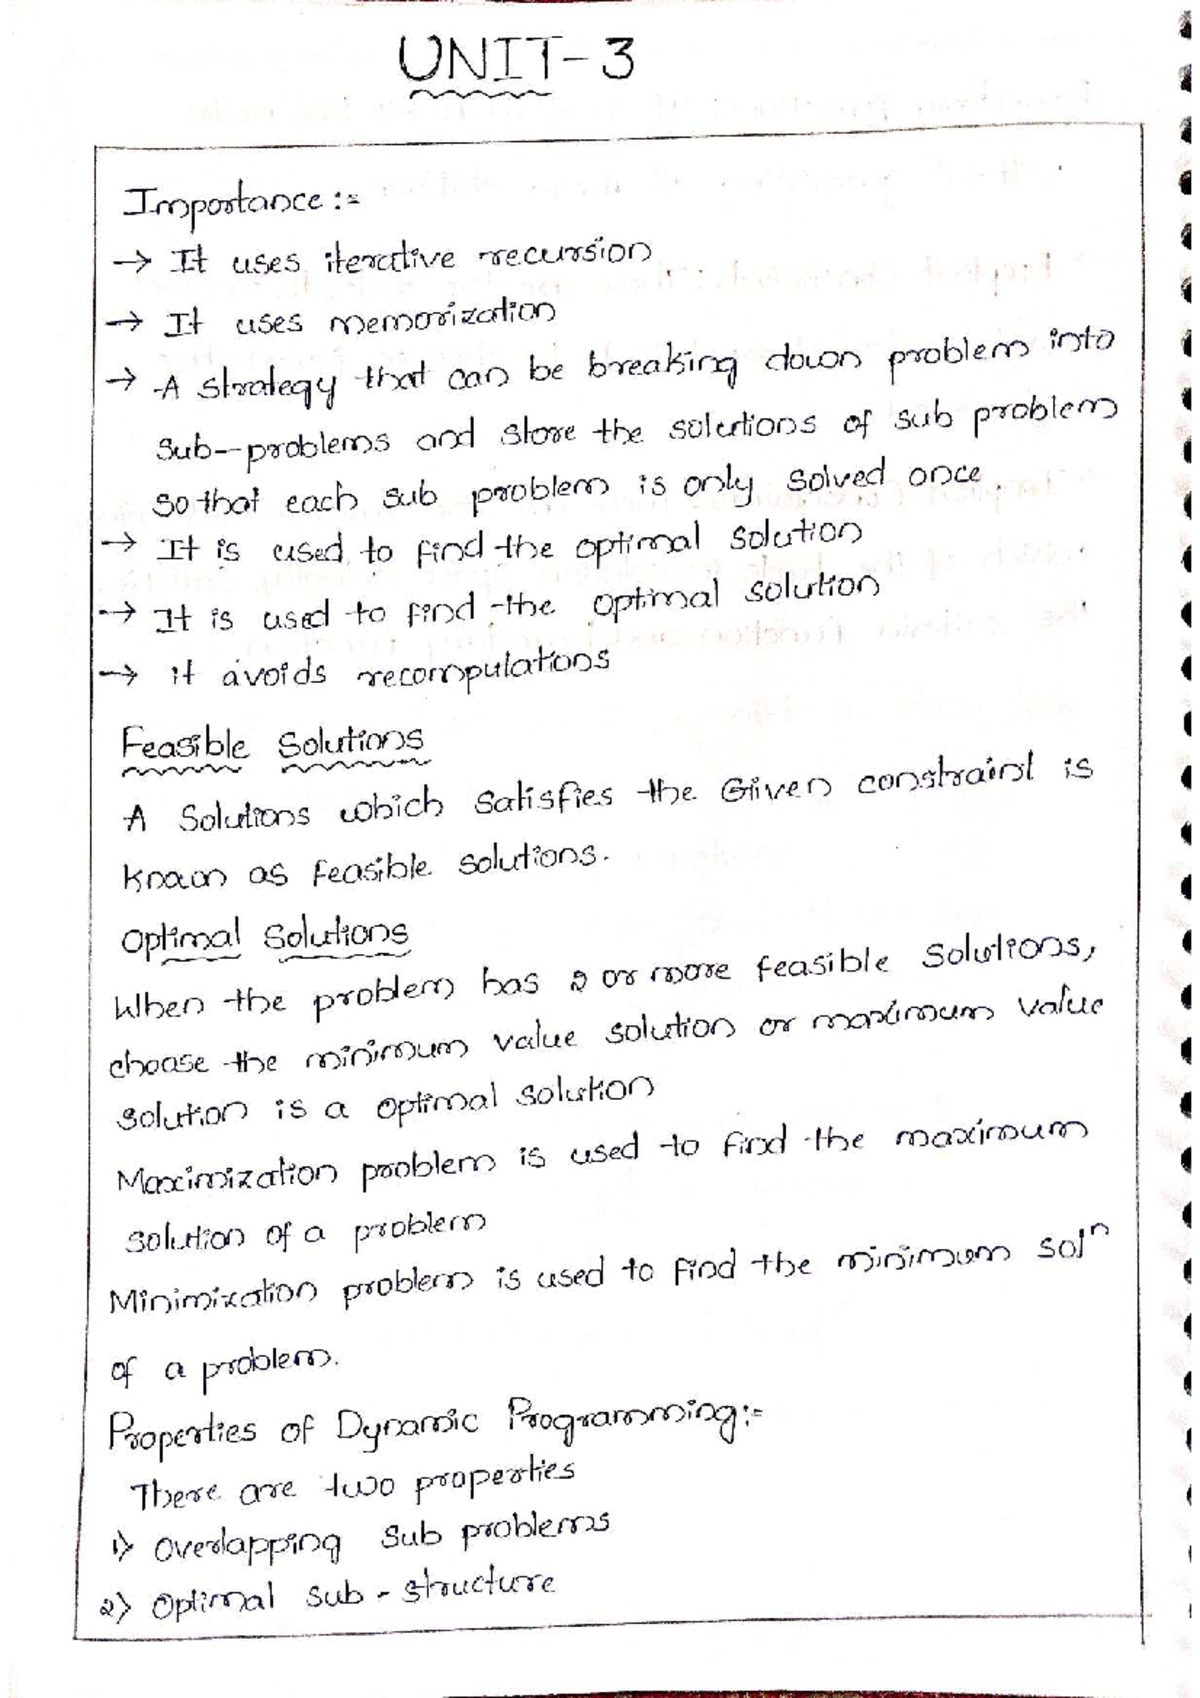 UNIT-3
Importance :-
→ It uses iterative recursion
→ It uses memorization
→ A strategy that can be breaking down problem into
sub-problems and store the solutions of sub problem
so that each sub problem is only solved once.
→ It is used to find the optimal solution
→ It is used to find the optimal solution
→ it avoids recomputations
Feasible Solutions
A Solutions which satisfies the Given constraint is
known as feasible solutions.
Optimal Solutions
When the problem has 2 or more feasible solutions,
choose the minimum value solution or maximum value
solution is a optimal solution
Maximization problem is used to find the maximum
solution of a problem
Minimization problem is used to find the minimum solⁿ
of a problem.
Properties of Dynamic Programming:-
There are two properties
1) Overlapping Sub problems
2) Optimal Sub-structure